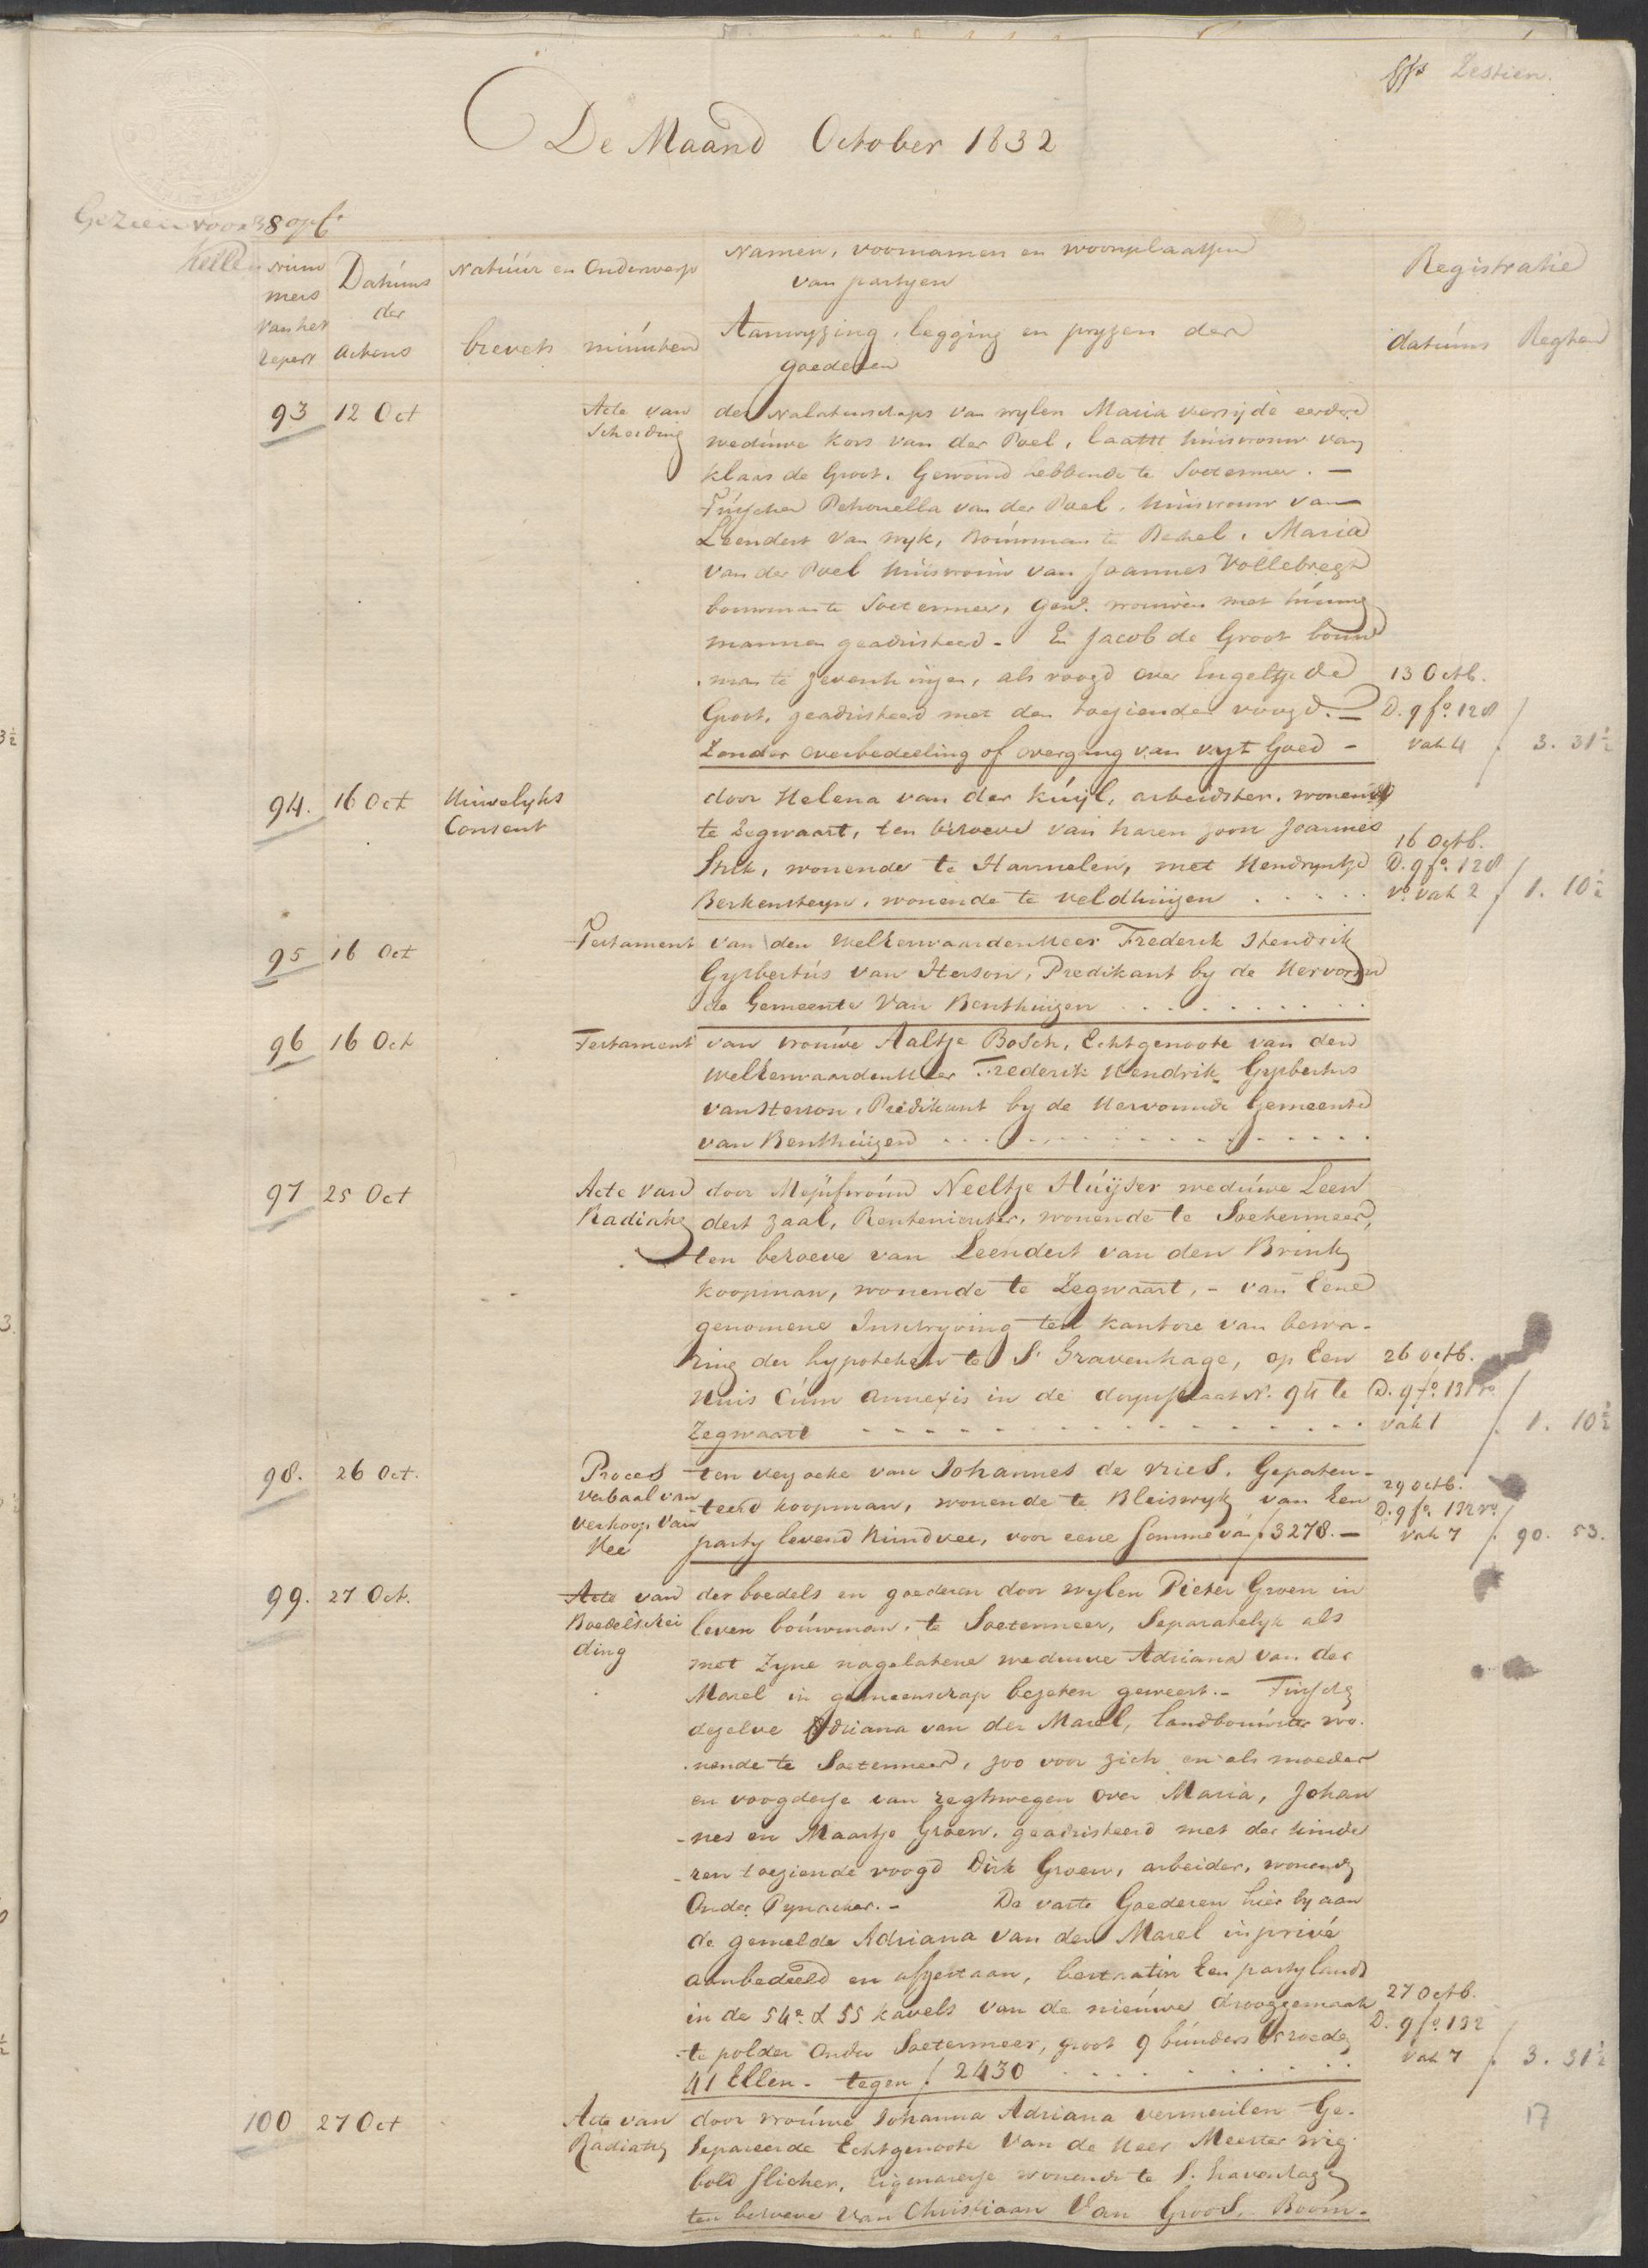 Zestien.
De Maand October 1832
Gezien voor 38 op
Num
mers
van het
repert
Datúms
der
actens
Natúúr en Onderwerp
brevets minúten
Namen, voornamen en woonplaatsen
van partyen
Aanwyzing, legging en pryzen der
goederen
Registratie
datúms Regten
93 12 Oct Acte van
Scheiding
der Nalatenschap van wylen Maria eerder
wedúwe Kors van der Poel, laatst húisvrouw van
Klaas de Groot. Gewoond hebbende te Soetermeer. —
Túschen Petronella van der Poel, húisvrouw van
Leendert van Wyk, Boúwman te Berkel, Maria
van der Poel húisvroúw van Joannes Vollebregt
bouwman te Soetermeer, gen. vrouwen met húnne
mannen geadsisteerd - En Jacob de Groot bouw
man te Zevenhuizen, als voogd over Engeltje de
Groot, geadsisteerd met den toezienden voogd. —
Zonder overbedeeling of overgang van vast Goed -
13 Octb.
D. 9 fo. 128
vak 4 f 3. 31½
94. 16 Oct Huwelyks
Consent
door Helena van der Kúijl, arbeidster, wonende
te Zegwaart, ten behoeve van haren zoon Joannes
wonende te Harmelen, met Hendryntje
Berkensteyn, wonende te Veldhúizen
16 Octb.
D. 9 fo. 128
vo. vak 2 f 1. 10½
95 16 Oct Testament van den Weleerwaarden Heer Frederik Hendrik
Gysbertús van Iterson, Predikant by de Hervorm
de Gemeente van Benthúizen
96 16 Oct Testament van vroúwe Aaltje Bosch, Echtgenoote van den
Weleerwaarden Heer Frederik Hendrik Gysbertus
van Iterson, Predikant by de Hervormde Gemeente
van Benthúizen
97 25 Oct Acte van
Radiatie
door Mejúfvroúw Neeltje Húijser wedúwe Leen
dert Zaal, Rentenierster, wonende te Soetermeer,
ten behoeve van Leendert van den Brink
koopman, wonende te Zegwaart, - van Eene
genomene Inschryving ten kantore van bewa-
ring der hypotheken te S. Gravenhage, op Een
Húis Cúm annexis in de dorpstraat No. 94 te
Zegwaart
26 octb.
D. 9 fo. 131 ro
vak 1 f 1. 10½
98. 26 Oct. Proces
verbaal van
verkoop van
Vee
ten verzoeke van Johannes de Vries, Gepaten-
teerd koopman, wonende te Bleiswyk van Een
party levend Rúndvee, voor eene Somme van f 3278. —
29 octb.
D. 9 fo. 132 ro
vak 7 f 90. 53.
99. 27 Oct. Acte van
Boedelschei
ding
der boedels en goederen door wylen Pieter Groen in
leven boúwman, te Soetermeer, Separatelyk als
met Zyne nagelatene weduwe Adriana van der
Marel in gemeenschap bezeten geweest. - Túschen
dezelve Adriana van der Marel, landboúwster wo-
nende te Soetermeer, zoo voor zich en als moeder
en voogdesse van regtswegen over Maria, Johan
-nes en Maartje Groen, geadsisteerd met der kinde
-ren toeziende voogd Dirk Groen, arbeider, wonende
Onder Pynacker. - De vaste Goederen hier by aan
de gemelde Adriana van der Marel in privé
aanbedeeld en afgestaan, bestaat in Een party land
in de 54e & 55 kavels van de nieúwe drooggemaak
-te polder Onder Soetermeer, groot 9 búnders roede
41 Ellen - tegen f 2430
27 Octb.
D. 9 fo. 132
vak 7 f 3. 31½
100 27 Oct Acte van
Radiatie
door vroúwe Johanna Adriana Vermeúlen Ge-
Separeerde Echtgenoote van de Heer Meester Wig
bold Slicher, Eigenaresse wonende te S. Gravenhage
ten behoeve van Christiaan Van Groos, Boom-
17